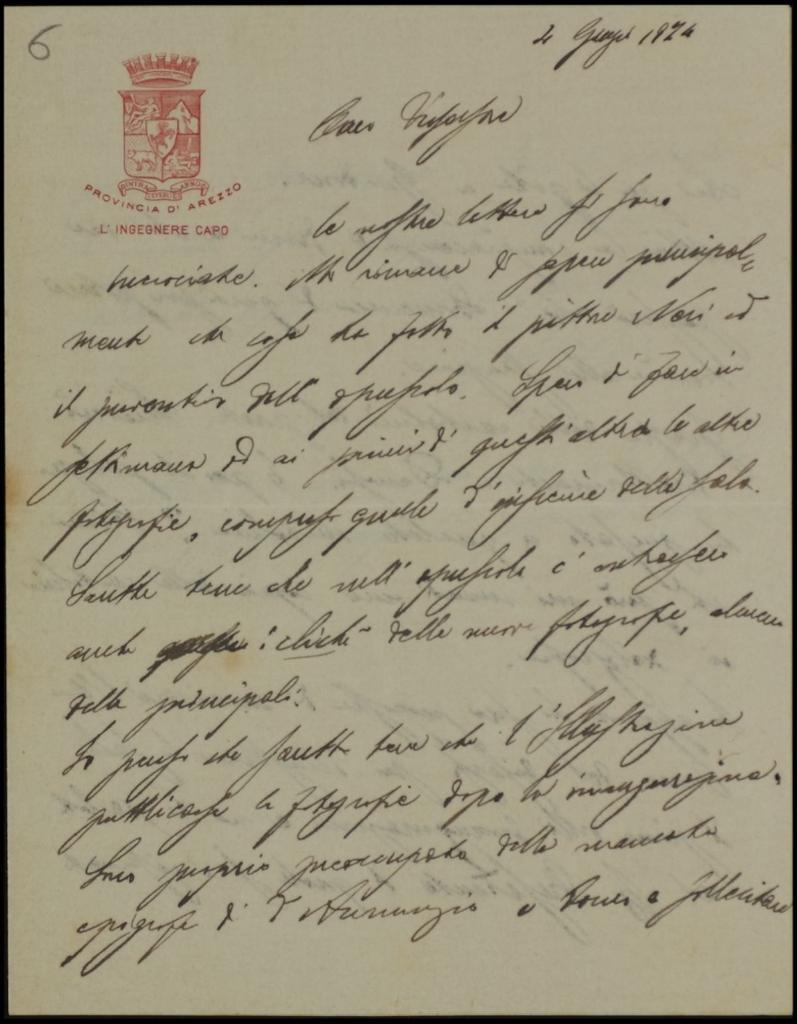 6
4 Giugno 1924
Caro Professore
PROVINCIA DI AREZZO
L'INGEGNERE CAPO
le nostre lettere si sono
incrociate. Mi rimane di sapere principal=
mente che cosa ha fatto il pittore Neri ed
il preventivo dell' opuscolo. Spero di fare in
settimana od ai primi di quest'altra le altre
fotografie, compreso quelle d'insieme della sala.
Sarebbe bene che nell' opuscolo c'entrassero
anche i clichè delle nuove fotografie, almeno
delle principali.
Io penso che sarebbe bene che l'Illustrazione
pubblicasse le fotografie dopo la inaugurazione.
Sono proprio preoccupato della mancata
epigrafe di D'Annunzio e sollecitare